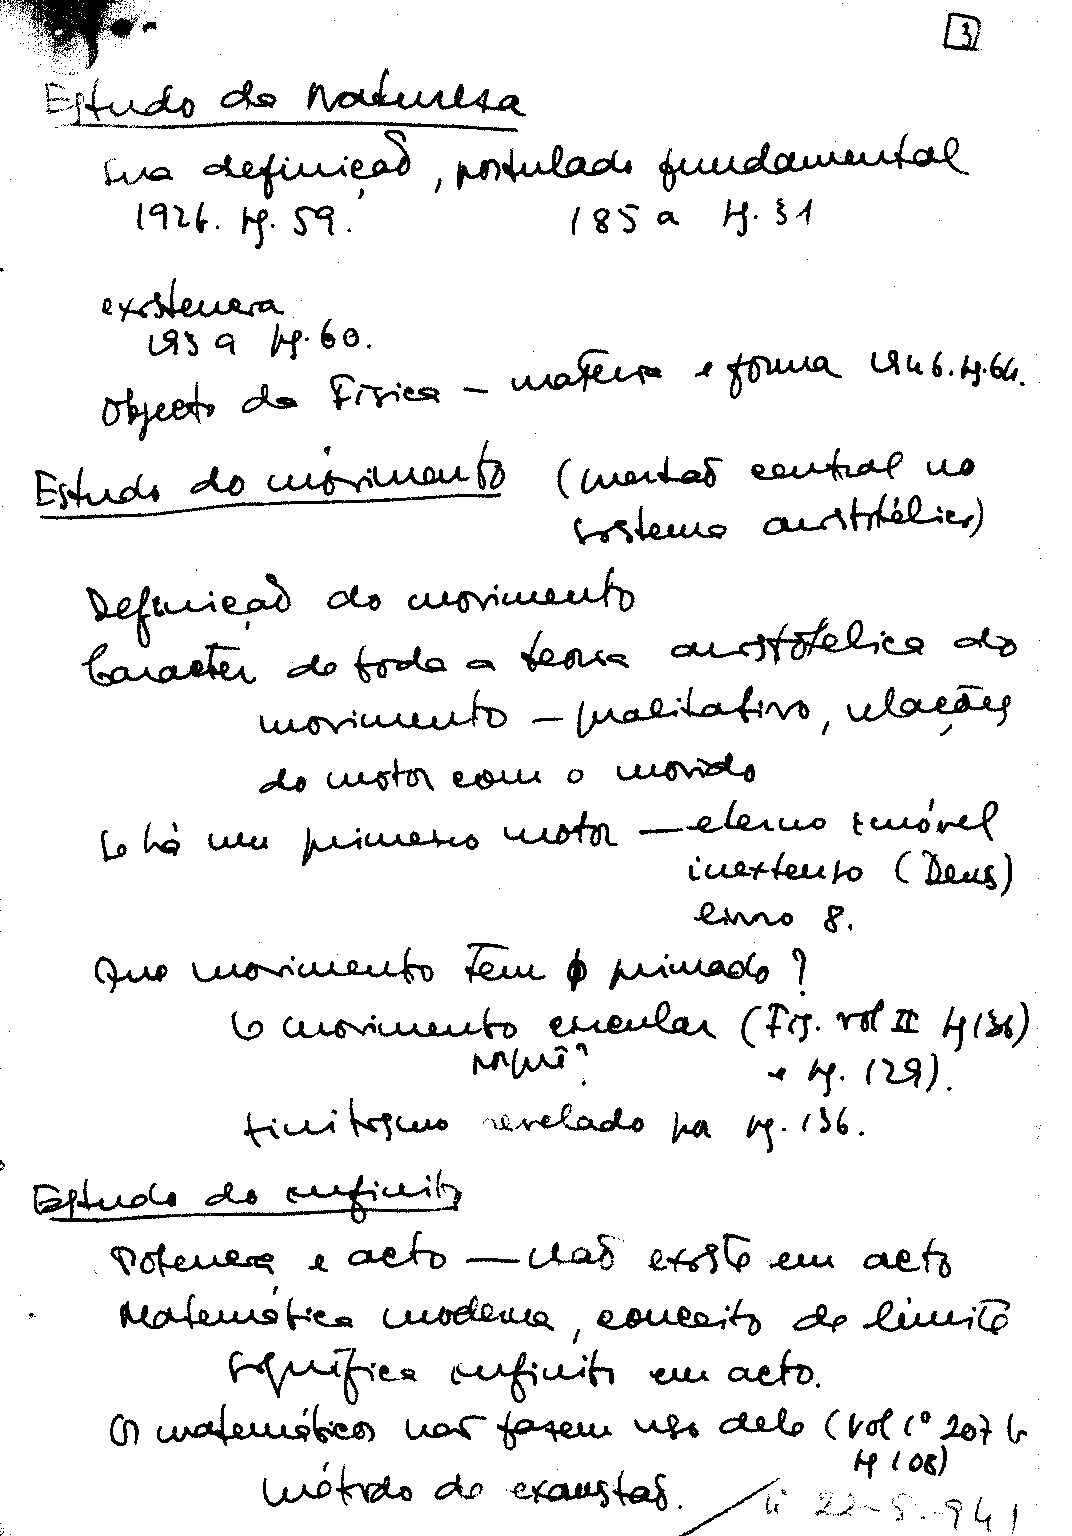 3
Estudo da Natureza
sua definição, postulado fundamental
192b. pg. 59. 185 a pg. 31
existencia
193 a pg. 60.
Objecto da Física – matéria e forma 194 b. pg. 64.
Estudo do movimento (questão central no
sistema aristotélico)
Definição do movimento
Caracter de toda a teoria aristotélica do
movimento – qualitativo, relações
do motor com o movido
So há um primeiro motor — eterno imóvel
inextenso (Deus)
livro 8.
Que movimento tem o primado?
O movimento circular (Fis. vol II pg 136)
porquê? e pg. 129).
finitismo revelado na pg. 136.
Estudo do infinito
Potencia e acto — não existe em acto
Matemática moderna, conceito de limite
significa infinito em acto.
Os matemáticos não fazem uso dele (vol 1º 207 b
pg 108)
método de exaustão.
22-5-941